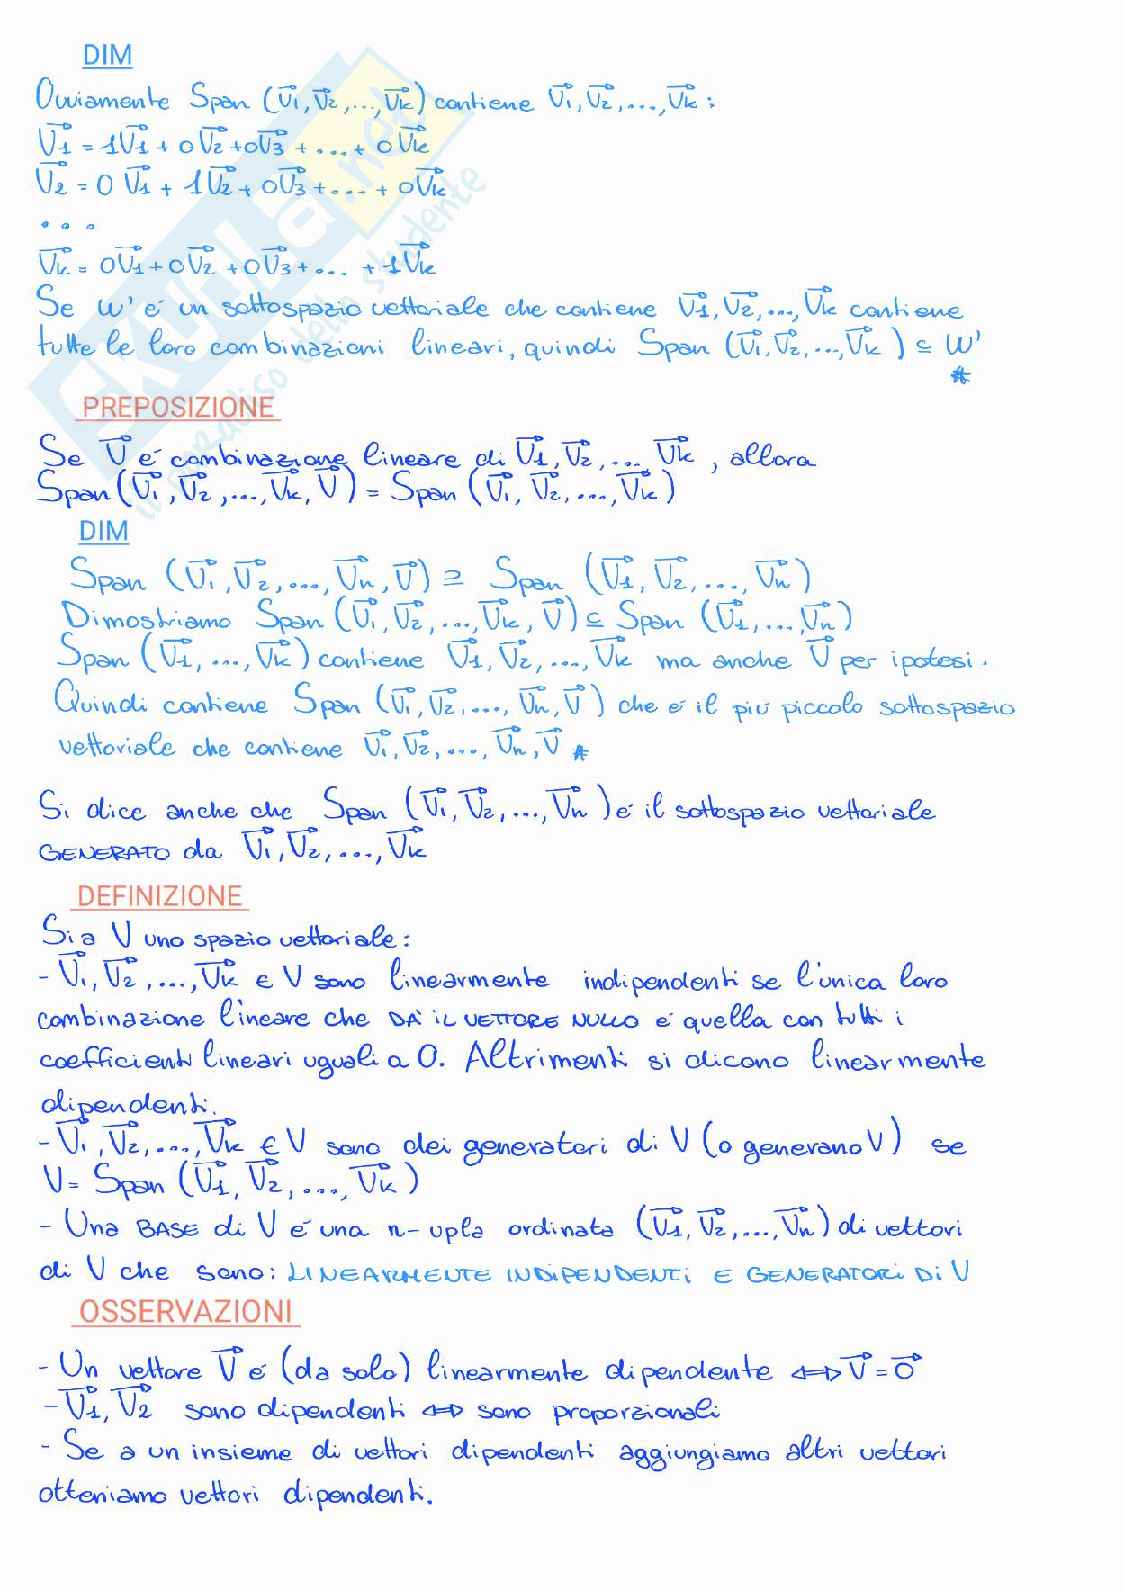 DIM
Ovviamente Span (v⃗1, v⃗2, ..., v⃗k) contiene v⃗1, v⃗2, ..., v⃗k:
v⃗1 = 1v⃗1 + 0v⃗2 + 0v⃗3 + ... + 0v⃗k
v⃗2 = 0v⃗1 + 1v⃗2 + 0v⃗3 + ... + 0v⃗k
...
v⃗k = 0v⃗1 + 0v⃗2 + 0v⃗3 + ... + 1v⃗k
Se W' é un sottospazio vettoriale che contiene v⃗1, v⃗2, ..., v⃗k contiene
tutte le loro combinazioni lineari, quindi Span (v⃗1, v⃗2, ..., v⃗k) ⊆ W'
*
PREPOSIZIONE
Se v⃗ é combinazione lineare di v⃗1, v⃗2, ... v⃗k, allora
Span (v⃗1, v⃗2, ..., v⃗k, v⃗) = Span (v⃗1, v⃗2, ..., v⃗k)
DIM
Span (v⃗1, v⃗2, ..., v⃗n, v⃗) ⊇ Span (v⃗1, v⃗2, ..., v⃗n)
Dimostriamo Span (v⃗1, v⃗2, ..., v⃗k, v⃗) ⊆ Span (v⃗1, ..., v⃗n)
Span (v⃗1, ..., v⃗k) contiene v⃗1, v⃗2, ..., v⃗k ma anche v⃗ per ipotesi.
Quindi contiene Span (v⃗1, v⃗2, ..., v⃗n, v⃗) che é il piú piccolo sottospazio
vettoriale che contiene v⃗1, v⃗2, ..., v⃗n, v⃗ *
Si dice anche che Span (v⃗1, v⃗2, ..., v⃗n) é il sottospazio vettoriale
GENERATO da v⃗1, v⃗2, ..., v⃗k
DEFINIZIONE
Sia V uno spazio vettoriale:
- v⃗1, v⃗2, ..., v⃗k ∈ V sono linearmente indipendenti se l'unica loro
combinazione lineare che DA' IL VETTORE NULLO é quella con tutti i
coefficienti lineari uguali a 0. Altrimenti si dicono linearmente
dipendenti.
- v⃗1, v⃗2, ..., v⃗k ∈ V sono dei generatori di V (o generano V) se
V = Span (v⃗1, v⃗2, ..., v⃗k)
- Una BASE di V é una n-upla ordinata (v⃗1, v⃗2, ..., v⃗n) di vettori
di V che sono: LINEARMENTE INDIPENDENTI E GENERATORI DI V
OSSERVAZIONI
- Un vettore v⃗ é (da solo) linearmente dipendente ⟺ v⃗ = 0⃗
- v⃗1, v⃗2 sono dipendenti ⟺ sono proporzionali
- Se a un insieme di vettori dipendenti aggiungiamo altri vettori
otteniamo vettori dipendenti.
SKUOLA.net
il paradiso dello studente